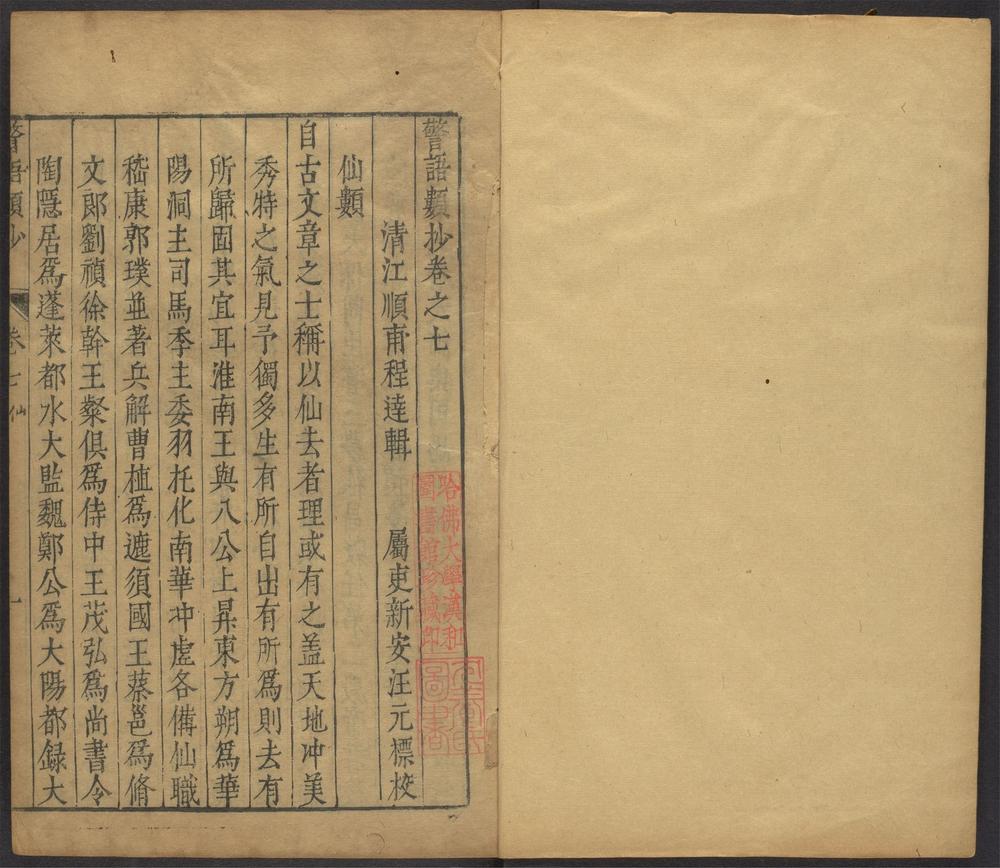 警語類抄卷之七
清江順甫程達輯　屬吏新安汪元標校
仙類
自古文章之士稱以仙去者理或有之盖天地冲美
秀特之氣見予獨多生有所自出有所為則去有
所歸固其宜耳淮南王與八公上昇東方朔為華
陽洞主司馬季主委羽托化南華冲虛各備仙職
嵇康郭璞並著兵解曹植為遮須國王蔡邕為脩
文郎劉禎徐幹王粲俱為侍中王茂弘為尚書令
陶隱居為蓬萊都水大監魏鄭公為大陽都録大
警語類抄　卷七 仙　一
哈佛大學漢和
圖書館珍藏印
圖書